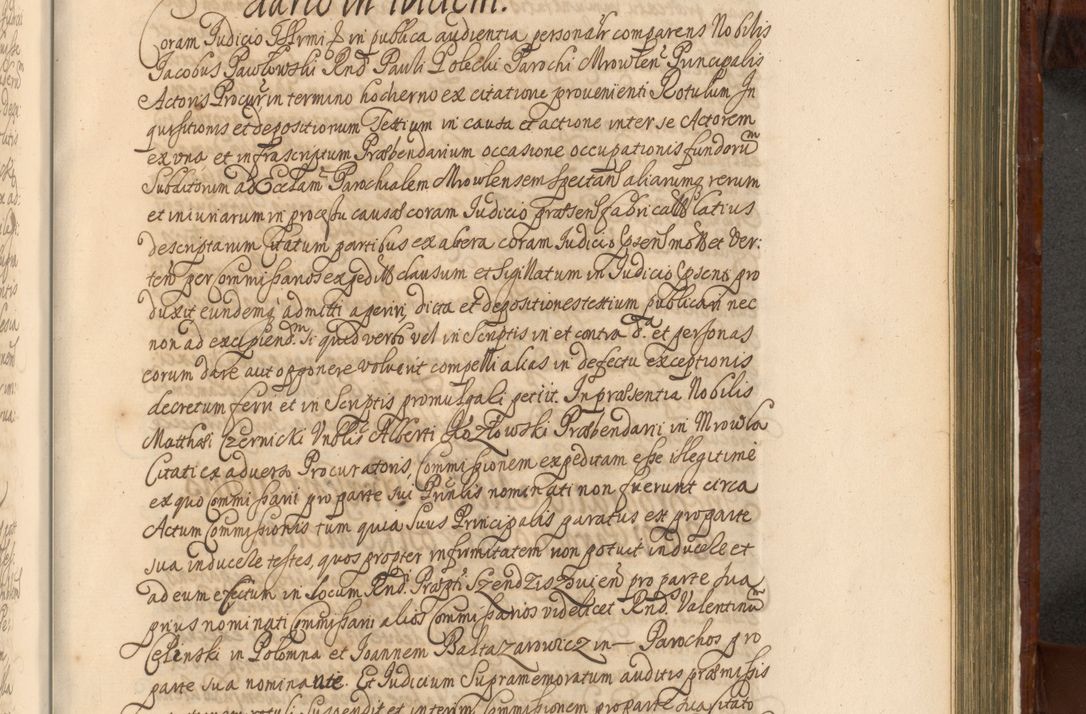 dario in ibidem.
Coram Judicio Illrmi J in publica audientia personalr comparens Nobilis
Jacobus Pawłowski Rnd Pauli Polecki Parochi Mrowlen Principalis
Actoris Procur in termino hodierno ex citatione provenienti Rotulum In
quisitionis et depositionum Testium in causa et actione inter se Actorem
ex una et infrascriptum Præbendarium occasione occupationis fundorum
Subditorum ad Ecclam Parochialem Mrowlensem spectan aliarumq rerum
et iniuriarum in processu causæ coram Judicio præsen fabricat latius
descriptarum Citatum partibus ex
ten per Commissarios expedit clausum et Sigillatum in Judicio psens pro
duxit eundemq admitti aperiri, dicta et depositiones testium publicari nec
non ad excipiend si quid verbo vel in Scriptis in et contra d.ta et personas
eorum dare aut opponere voluerit compelli alias in defectu exceptionis
decretum ferri et in Scriptis promulgari petiit. In præsentia Nobilis
Matthæi Czernicki Vnblis Alberti Kozłowski Præbendarii in Mrowla
Citati ex adverso Procuratoris, Commissionem expeditam esse illegitime
ex quo Commissarii pro parte sui Prinlis nominati non fuerunt circa
Actum Commissionis tum quia Suus Principalis paratus est pro parte
sua inducere testes, quos propter infirmitatem non potuit inducere et
ad eum effectum in Locum Rnd. Præpti Szendziszovien pro parte sua
prius nominati Commissarii alios Commissarios videlicet Rnd. Valentinum
Celenski in Polomna et Joannem Baltazarowicz in — Parochos pro
parte sua nominante. Et Judicium Supramemoratum auditis præmissis
rotuli Suspendit et interim Commissionem pro parte sua